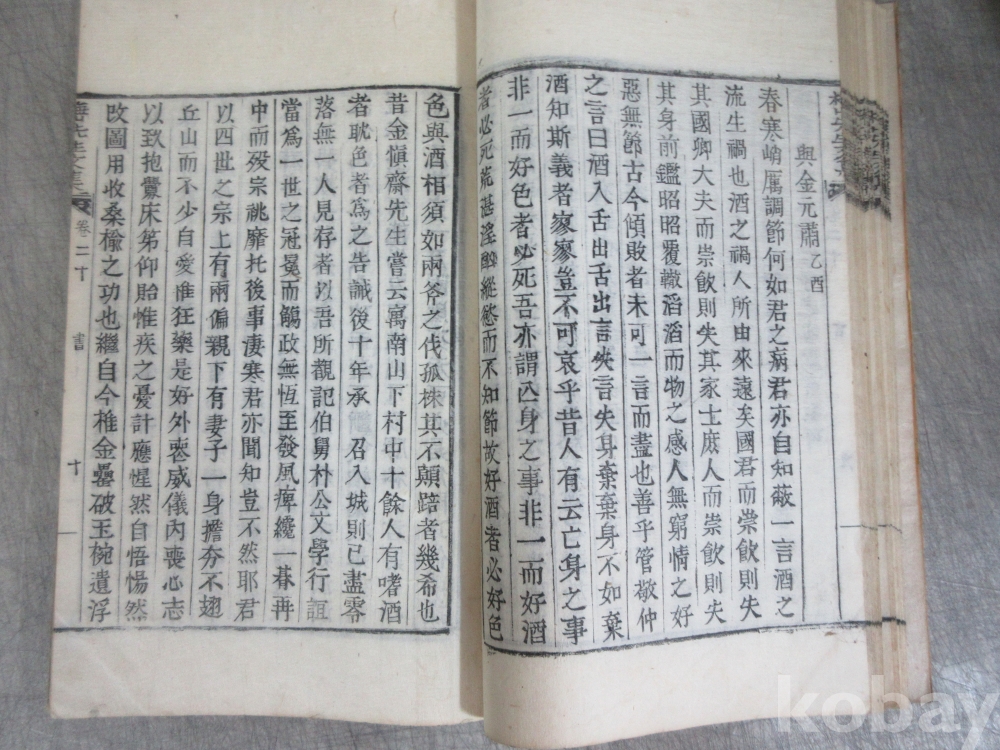 與金元肅 乙酉
春寒峭厲調節何如君之病君亦自知蔽一言酒之
流生禍也酒之禍人所由來遠矣國君而崇飮則失
其國卿大夫而崇飮則失其家士庶人而崇飮則失
其身前鑑昭昭覆轍滔滔而物之感人無窮情之好
惡無節古今傾敗者未可一言而盡也善乎管敬仲
之言曰酒入舌出舌出言失言失身棄棄身不如棄
酒知斯義者寥寥豈不可哀乎昔人有云亡身之事
非一而好色者必死吾亦謂亾身之事非一而好酒
者必死荒湛淫縱慾而不知節故好酒者必好色
色與酒相須如兩斧之伐孤株其不顚踣者幾希也
昔金愼齋先生嘗云寓南山下村中十餘人有嗜酒
者耽色者爲之告誡後十年承 召入城則已盡零
落無一人見存者以吾所觀記伯舅朴公文學行誼
當爲一世之冠冕而觴政無恆至發風痺纔一朞再
中而歿宗祧靡托後事凄寒君亦聞知豈不然耶君
以四世之宗上有兩偏親下有妻子一身擔夯不翅
丘山而不少自愛惟狂藥是好外喪威儀內喪心志
以致抱虀床笫仰貽惟疾之憂計應惺然自悟惕然
改圖用收桑楡之功也繼自今椎金罍破玉椀遺浮
先生文集
卷二十
書
十
kobay